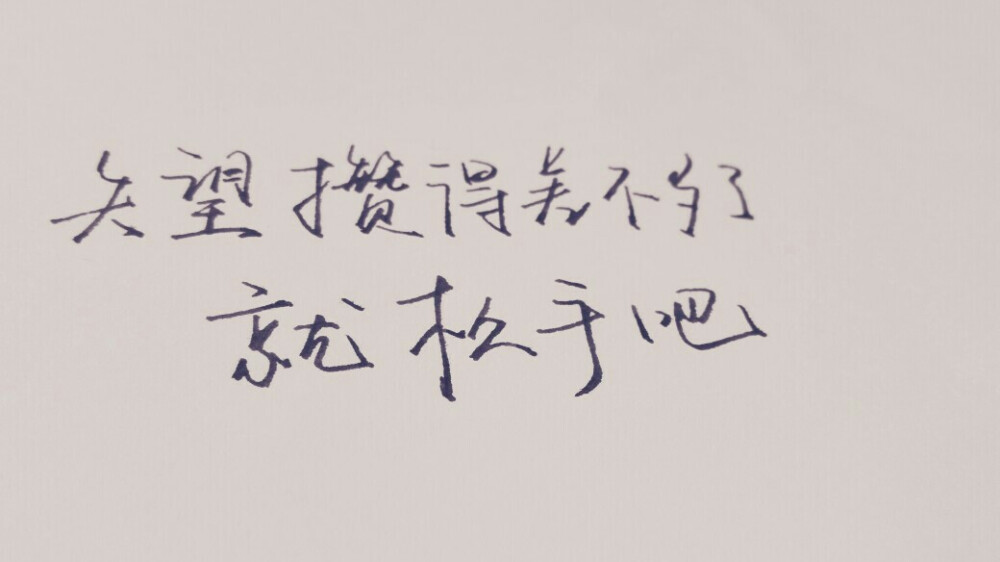 失望攒得差不多了
就松手吧